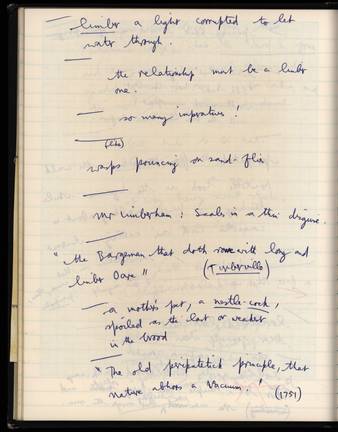 — limber a light corrupted to let
water through.
—
the relationship must be a limber
one.
— so many imperatives!
—
(like)
wasps pouncing on sand-flies
—
— Mr Limberham: Seals in a thin disguise.
—
"the Bargeman that doth rowe with long and
limber Oare"
(Turberville)
— a mother's pet, a nestle-cock,
spoiled as the last or weakest
in the brood
—
"The old peripatetick principle, that
nature abhors a Vacuum." (1751)